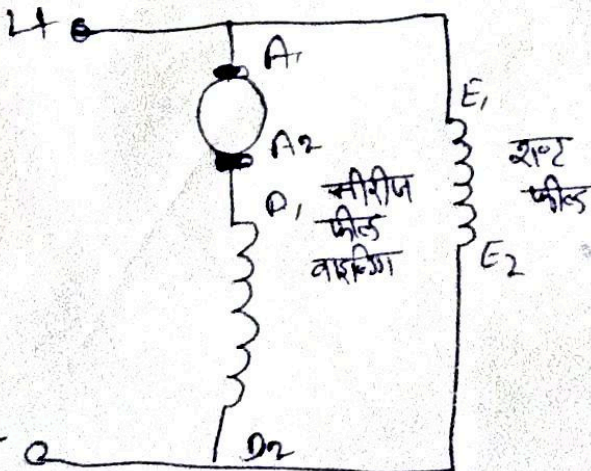 L+
A1
A2
D1
सीरीज
फील्ड
वाइन्डिंग
E1
शण्ट
फील्ड
E2
-
D2